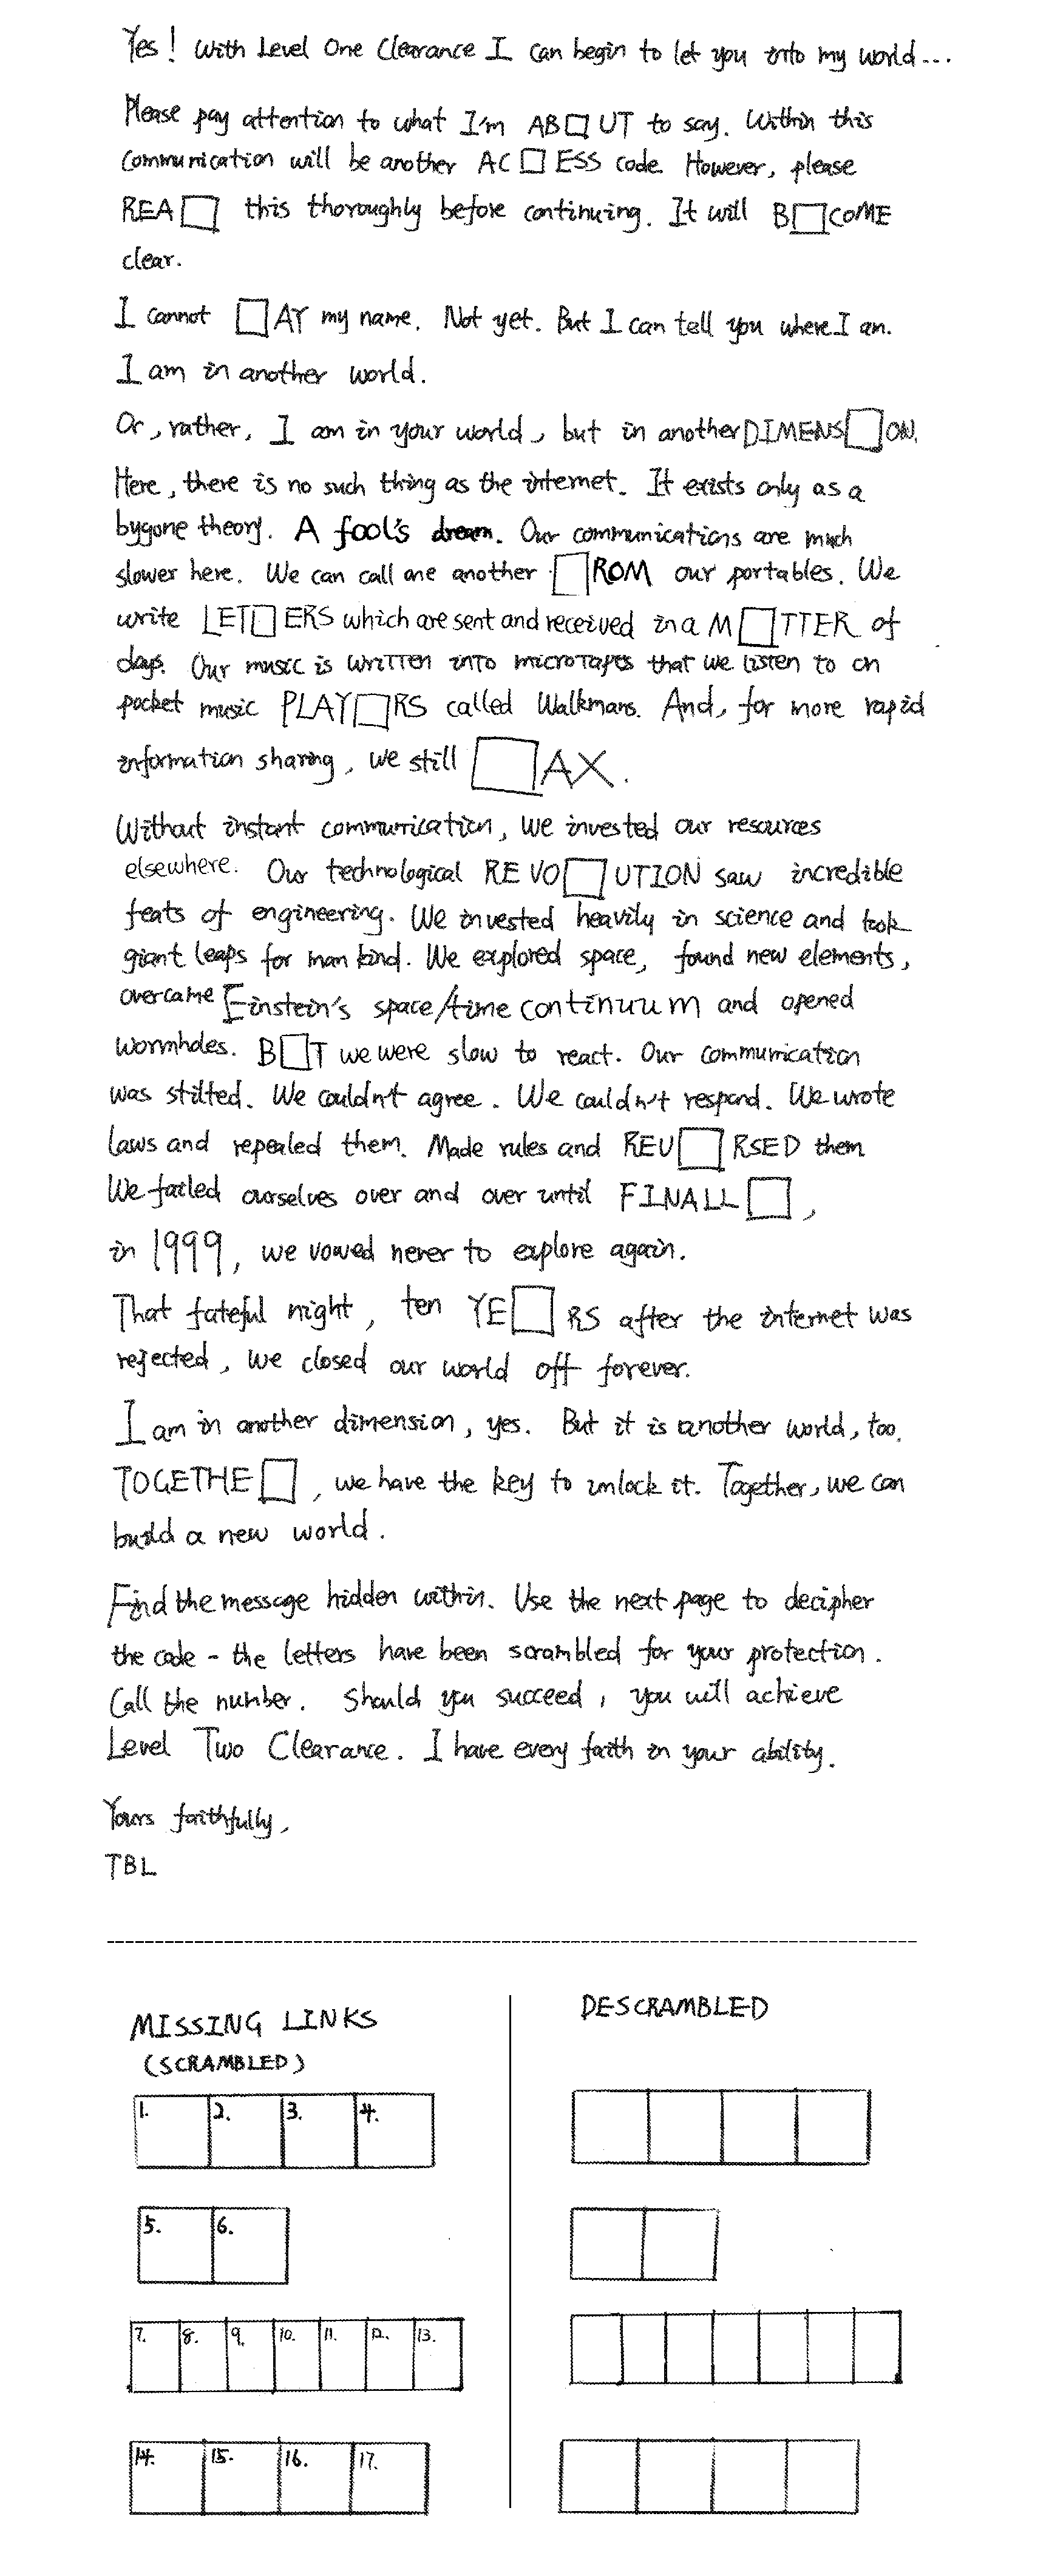 Yes! With Level One Clearance I can begin to let you into my world...
Please pay attention to what I'm AB□UT to say. Within this
communication will be another AC□ESS code. However, please
REA□ this thoroughly before continuing. It will B□COME
clear.
I cannot □AY my name. Not yet. But I can tell you where I am.
I am in another world.
Or, rather, I am in your world, but in another DIMENS□ON.
Here, there is no such thing as the internet. It exists only as a
bygone theory. A fool's dream. Our communications are much
slower here. We can call one another □ROM our portables. We
write LET□ERS which are sent and received in a M□TTER of
days. Our music is written into microtapes that we listen to on
pocket music PLAY□RS called Walkmans. And, for more rapid
information sharing, we still □AX.
Without instant communication, we invested our resources
elsewhere. Our technological REVO□UTION saw incredible
feats of engineering. We invested heavily in science and took
giant leaps for man kind. We explored space, found new elements,
overcame Einstein's space/time continuum and opened
wormholes. B□T we were slow to react. Our communication
was stilted. We couldn't agree. We couldn't respond. We wrote
laws and repealed them. Made rules and REV□RSED them
We failed ourselves over and over until FINALL□,
in 1999, we vowed never to explore again.
That fateful night, ten YE□RS after the internet was
rejected, we closed our world off forever.
I am in another dimension, yes. But it is another world, too.
TOGETHE□, we have the key to unlock it. Together, we can
build a new world.
Find the message hidden within. Use the next page to decipher
the code - the letters have been scrambled for your protection.
Call the number. Should you succeed, you will achieve
Level Two Clearance. I have every faith in your ability.
Yours faithfully,
TBL
MISSING LINKS
DESCRAMBLED
(SCRAMBLED)
1. 2. 3. 4.
5. 6.
7. 8. 9. 10. 11. 12. 13.
14. 15. 16. 17.